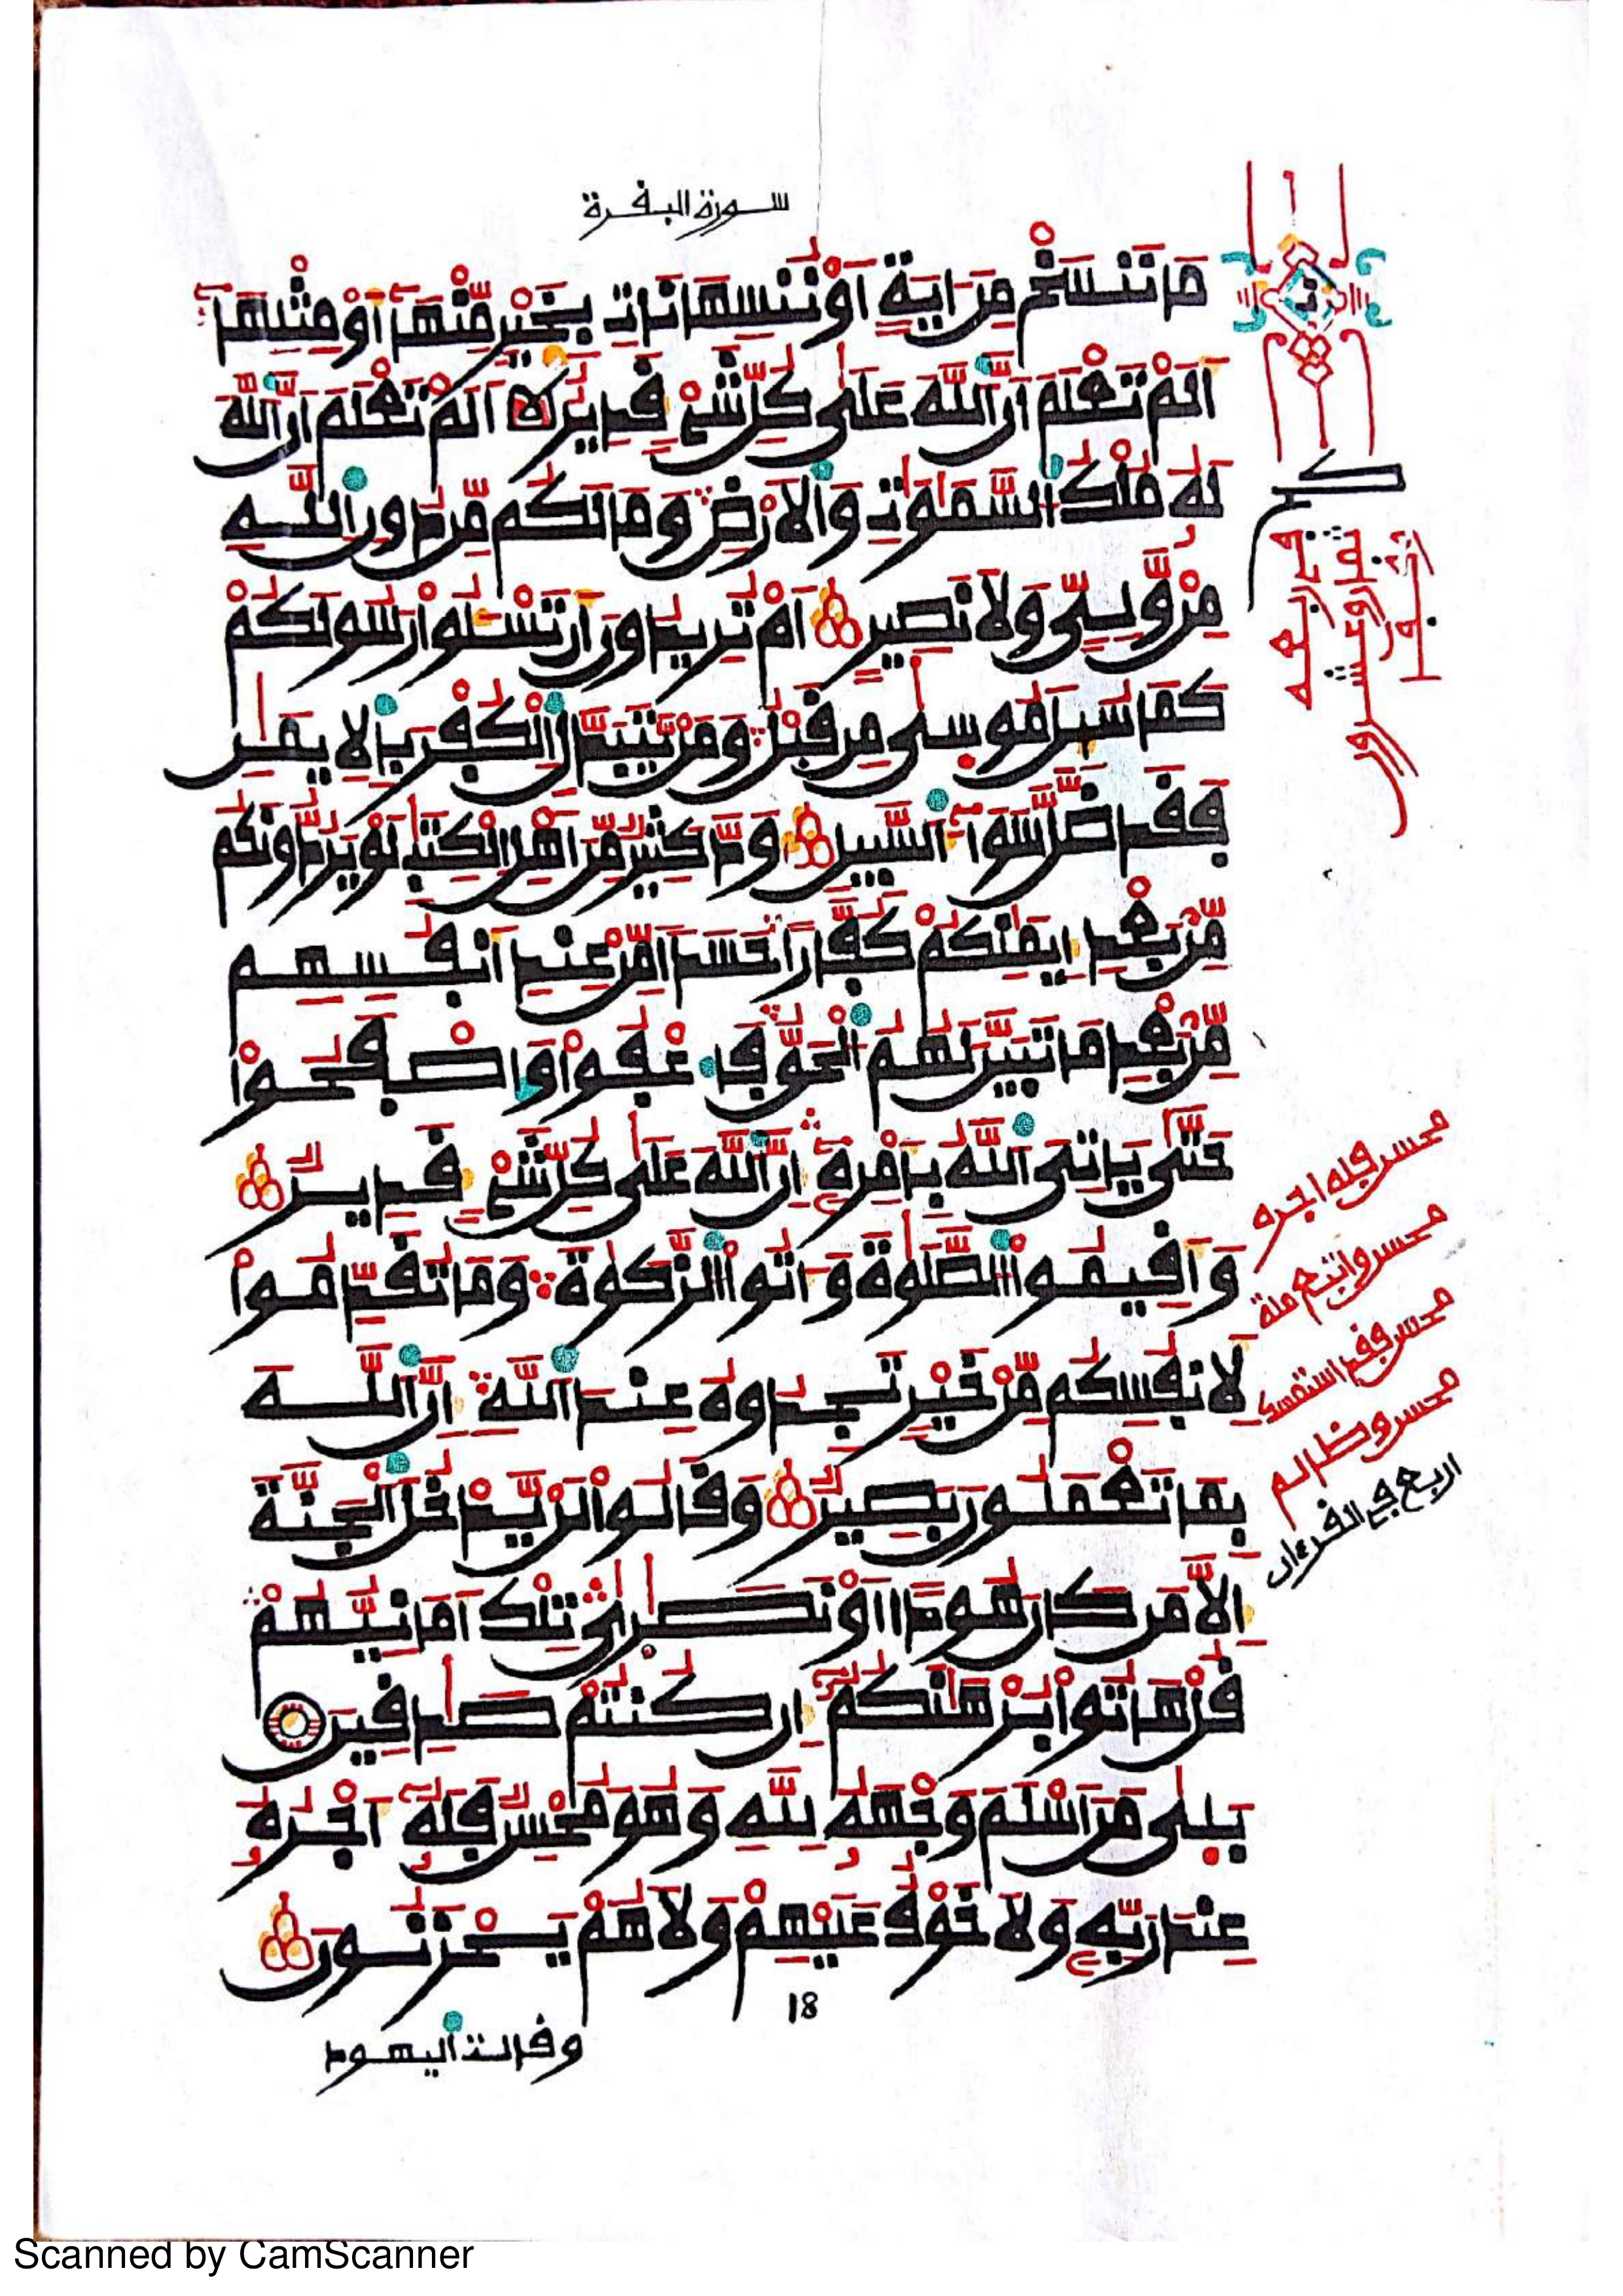 سورة البقرة
مَا نَنسَخْ مِنَ ايَةٍ اَوْ نُنسِهَا نَاتِ بِخَيْرٍ مِّنْهَآ أَوْ مِثْلِهَآ
اَلَمْ تَعْلَمَ اَنَّ اَللَّهَ عَلَىٰ كُلِّ شَےْءٍ قَدِيرٌ اَلَمْ تَعْلَمَ اَنَّ اَللَّهَ
لَهُۥ مُلْكُ اُلسَّمَٰوَٰتِ وَالَارْضِ وَمَا لَكُم مِّن دُونِ اِللَّهِ
مِنْ وَّلِيٍّ وَلَا نَصِيرٍ اَمْ تُرِيدُونَ أَن تَسْـَٔلُواْ رَسُولَكُمْ
كَمَا سُئِلَ مُوسىٰ مِن قَبْلُ وَمَنْ يَّتَبَدَّلِ اِلْكُفْرَ بِالِايمَٰنِ
فَقَد ضَّلَّ سَوَآءَ اَلسَّبِيلِ وَدَّ كَثِيرٌ مِّنَ اَهْلِ اِلْكِتَٰبِ لَوْ يَرُدُّونَكُم
مِّنۢ بَعْدِ إِيمَٰنِكُمْ كُفَّاراً حَسَداً مِّنْ عِندِ أَنفُسِهِم
مِّنۢ بَعْدِ مَا تَبَيَّنَ لَهُمُ اُلْحَقُّ فَاعْفُواْ وَاصْفَحُواْ
حَتَّىٰ يَاتِىَ اَللَّهُ بِأَمْرِهِۦٓ إِنَّ اَللَّهَ عَلَىٰ كُلِّ شَےْءٍ قَدِيرٌ
وَأَقِيمُواْ اُلصَّلَوٰةَ وَءَاتُواْ اُلزَّكَوٰةَ وَمَا تُقَدِّمُواْ
لِأَنفُسِكُم مِّنْ خَيْرٍ تَجِدُوهُ عِندَ اَللَّهِ إِنَّ اَللَّهَ
بِمَا تَعْمَلُونَ بَصِيرٌ وَقَالُواْ لَنْ يَّدْخُلَ اَلْجَنَّةَ
إِلَّا مَن كَانَ هُوداً اَوْ نَصَٰرىٰ تِلْكَ أَمَانِيُّهُمْ
قُلْ هَاتُواْ بُرْهَٰنَكُمُۥٓ إِن كُنتُمْ صَٰدِقِينَ
بَلىٰ مَنَ اَسْلَمَ وَجْهَهُۥ لِلَّهِ وَهُوَ مُحْسِنٌ فَلَهُۥٓ أَجْرُهُۥ
عِندَ رَبِّهِۦ وَلَا خَوْفٌ عَلَيْهِمْ وَلَا هُمْ يَحْزَنُونَ
18
وقالت اليهود
محسن فله اجره
محسن واتبع ملة
محسن فقد استمسك
محسن وظالم
اربع في القرءان
Scanned by CamScanner